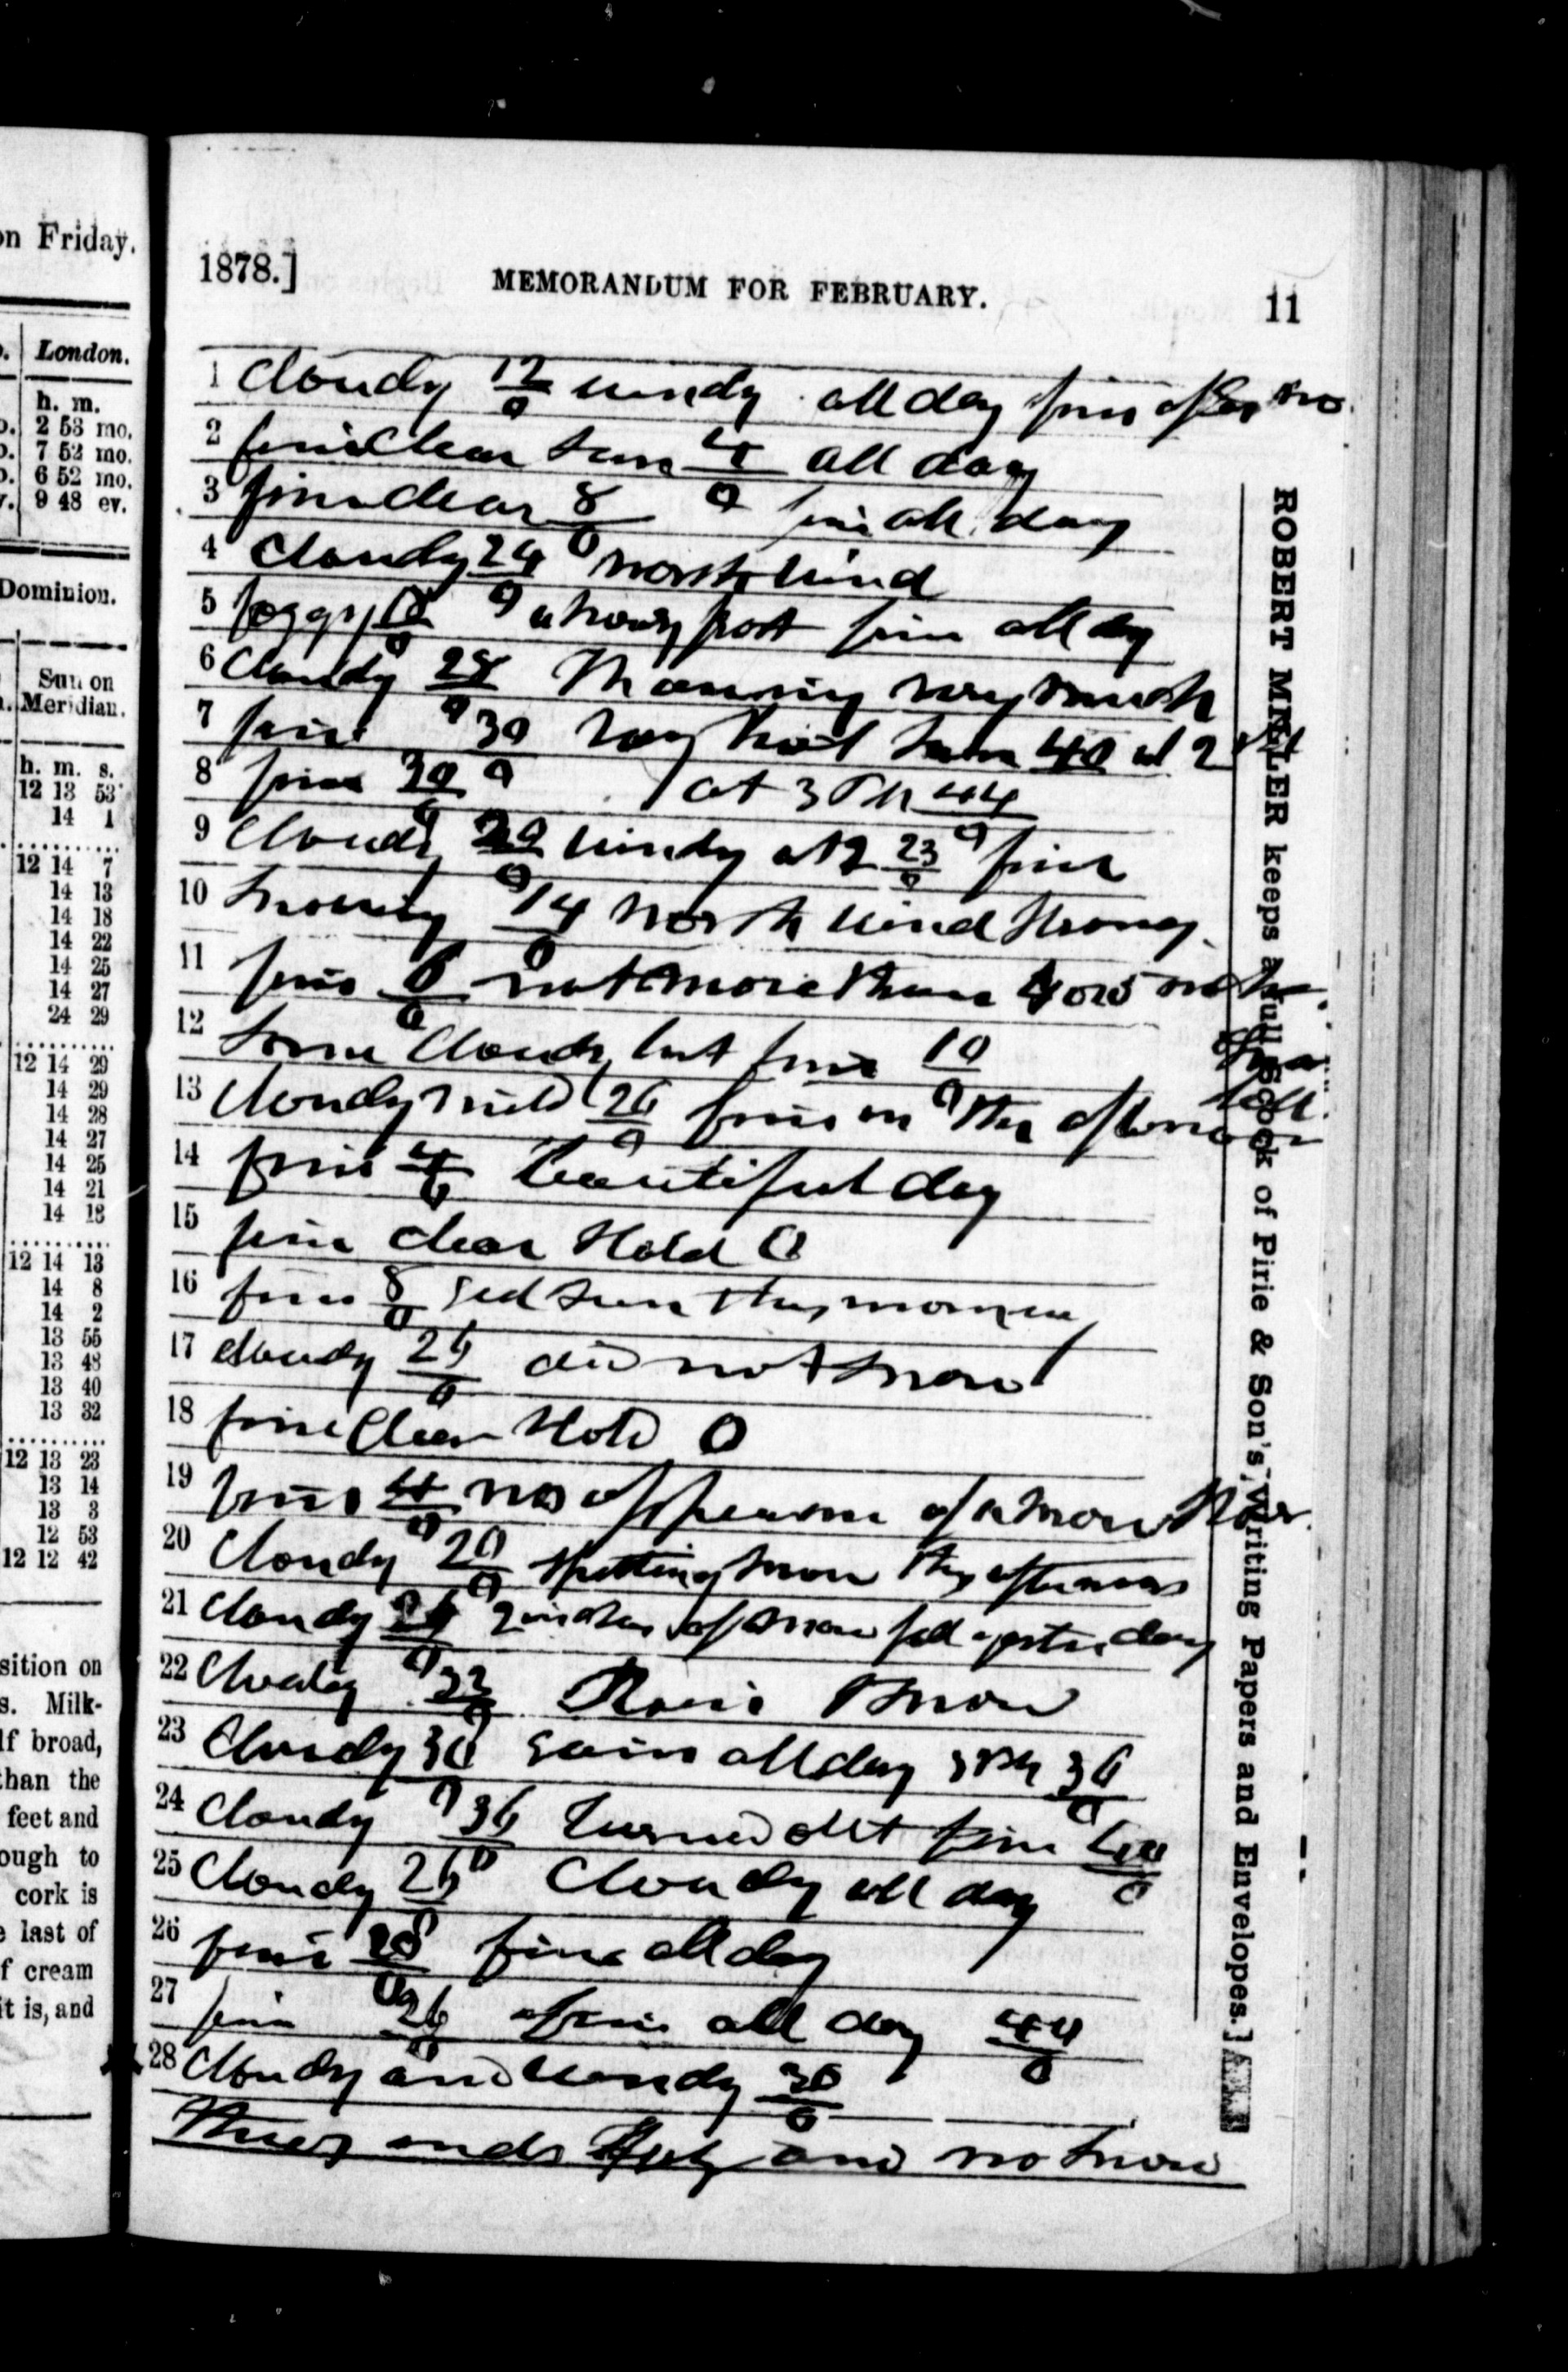 on Friday.
London.
h. m.
2 53 mo.
7 52 mo.
6 52 mo.
9 48 ev.
Dominion.
Sun on
Meridian.
h. m. s.
12 13 53
14 1
12 14 7
14 13
14 18
14 22
14 25
14 27
24 29
12 14 29
14 29
14 28
14 27
14 25
14 21
14 18
12 14 13
14 8
14 2
13 55
13 48
13 40
13 32
12 13 23
13 14
13 3
12 53
12 12 42
sition on
s. Milk-
lf broad,
than the
feet and
ough to
cork is
e last of
f cream
it is, and
1878.]
MEMORANDUM FOR FEBRUARY.
11
1 Cloudy 12/0 windy all day fine after no
2 fine Clear sun 4/0 all day
3 fine clear 8/0 fine all day
4 Cloudy 24/0 north wind
5 foggy 18/0 a hoary frost fine all day
6 Cloudy 28/0 Thawing very much
7 fine 30/0 hot sun 40 at 2
8 fine 30/0 at 3 PM 44/0
9 Cloudy 20/0 windy at 2 23/0 fine
10 Snowing 14/0 North wind strong
11 fine 6/0 not more than 4 or 5 inches
of snow
fell
12 Some Clouds but fine 10/0
13 Cloudy mild 26/0 fine in the afternoon
14 fine 4/0 beautiful day
15 fine clear Kold 0
16 fine 8/0 red sun this morning
17 cloudy 26/0 did not snow
18 fine Clear Kold 0
19 fine 4/0 no appearance of a snow
20 Cloudy 20/0 spitting snow this afternoon
21 Cloudy 26/0 2 inches of snow fell yesterday
22 Cloudy 32/0 Rain & snow
23 Cloudy 30/0 rain all day 3 PM 36/0
24 Cloudy 36/0 turned out fine 40/0
25 Cloudy 26/0 Cloudy all day
26 fine 28/0 fine all day
27 fine 26/0 fine all day 44/0
28 Cloudy and windy 36/0
Thus ends Feby and no snow
ROBERT MILLER keeps a full Stock of Pirie & Son's Writing Papers and Envelopes.]